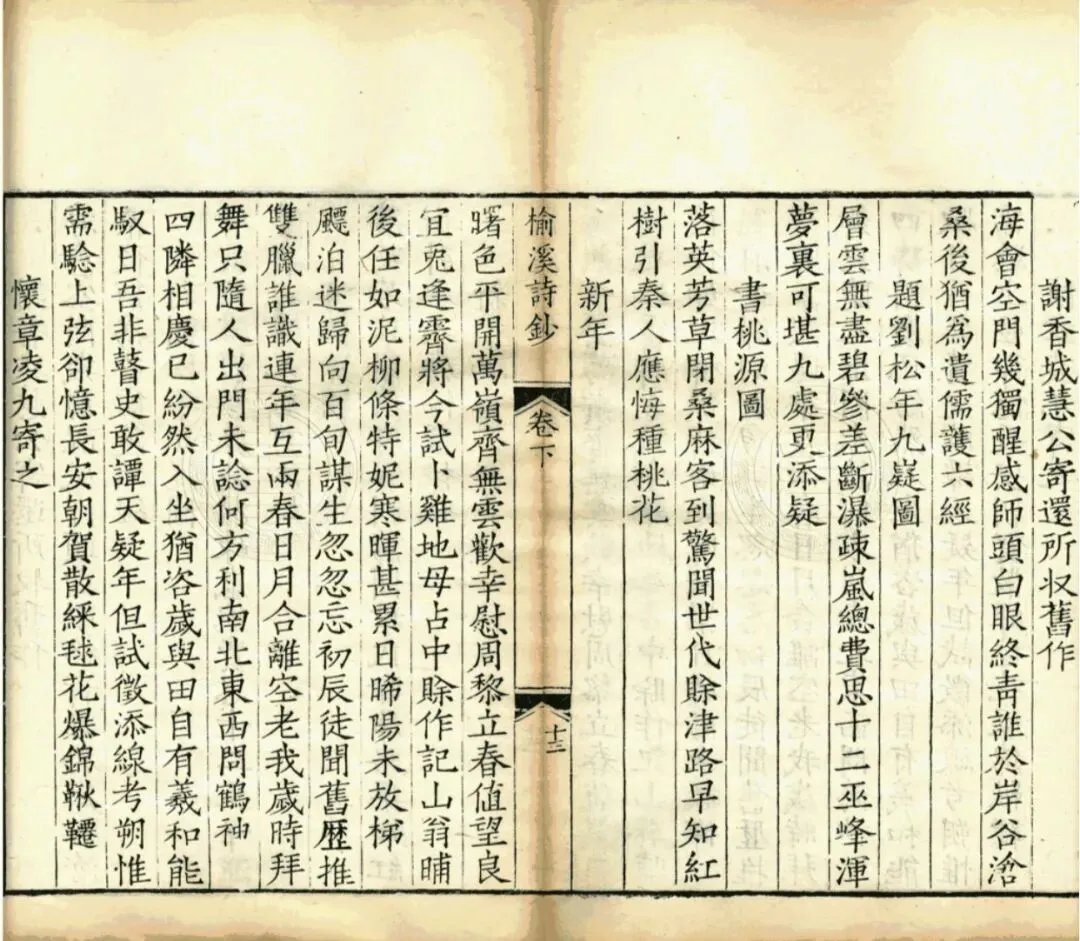 謝香城慧公寄還所収舊作
海會空門幾獨醒感師頭白眼終靑誰於岸谷滄
桑後猶爲遺儒護六經
題劉松年九嶷圖
層雲無盡碧參差斷瀑疎嵐總費思十二巫峰渾
夢裏可堪九處更添疑
書桃源圖
落英芳草閉桑麻客到驚聞世代賒津路早知紅
樹引秦人應悔種桃花
新年
榆溪詩鈔
卷下
十三
曙色平開萬嶺齊無雲歡幸慰周黎立春値望良
宜兎逢霽將今試卜雞地母占中賒作記山翁晡
後任如泥柳條特妮寒暉甚累日晞陽未放梯
飃泊迷歸向百旬謀生忽忽忘初辰徒聞舊歴推
雙臘誰識連年互兩春日月合離空老我歲時拜
舞只隨人出門未諗何方利南北東西問鶴神
四隣相慶已紛然入坐猶咨歲與田自有羲和能
馭日吾非瞽史敢譚天疑年但試徵添線考朔惟
需驗上弦卻憶長安朝賀散綵毬花爆錦鞦韆
懷章凌九寄之